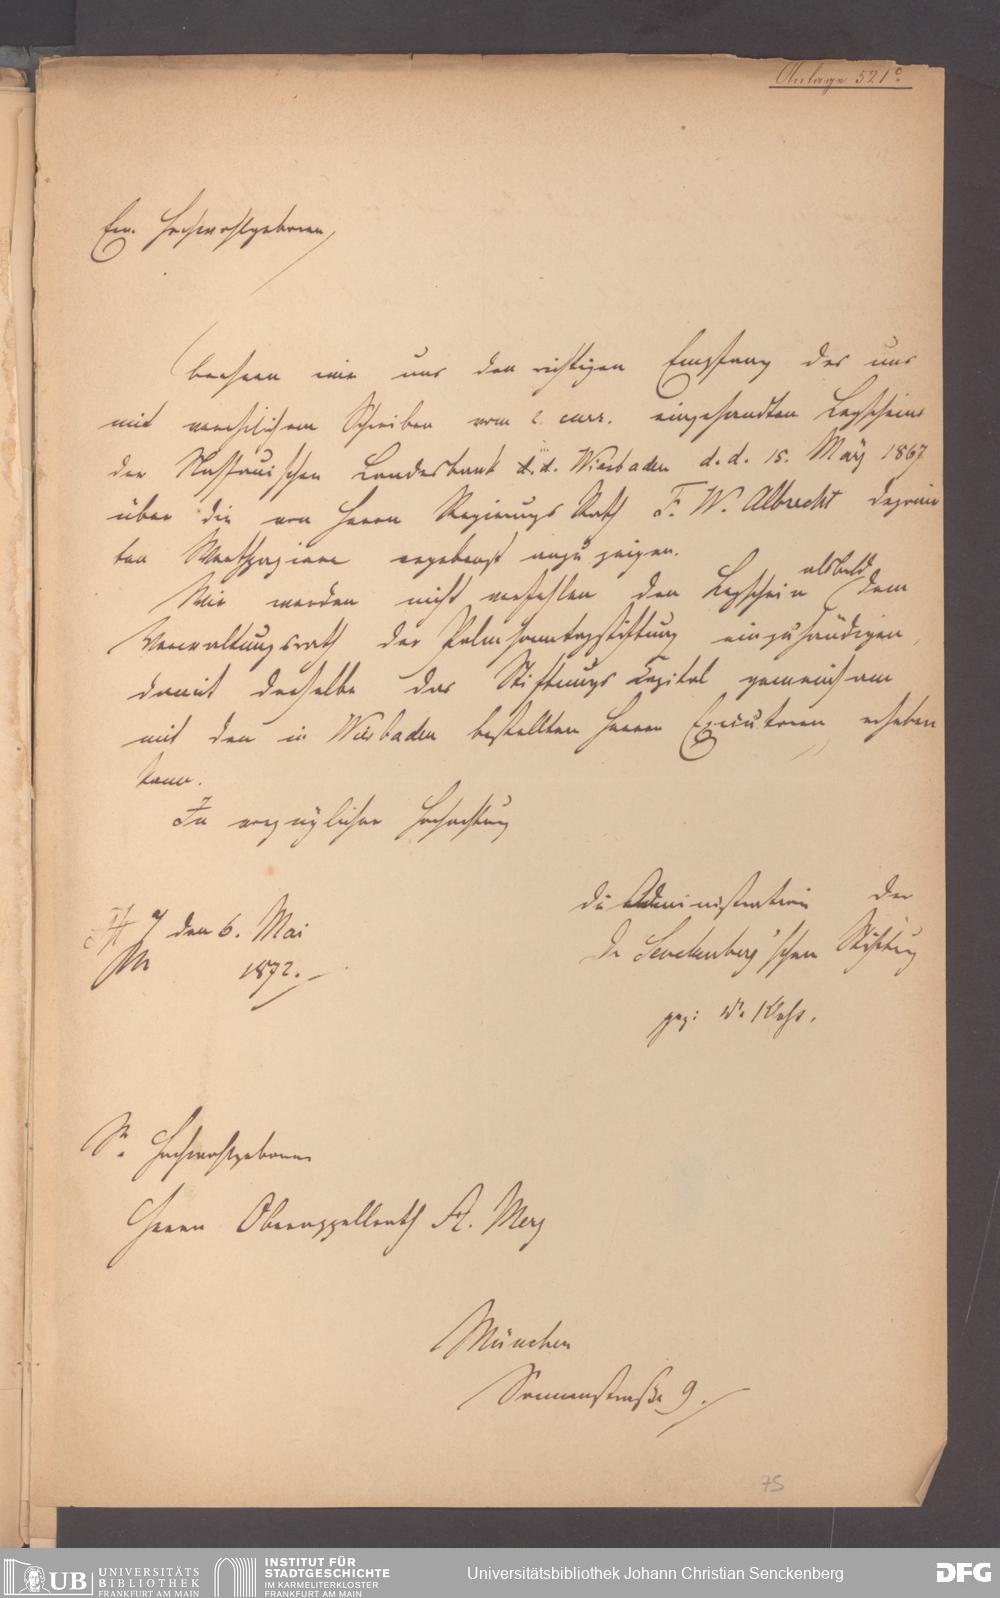 Anlage 521c.
Ew. Hochwohlgeboren,
beehren wir uns den richtigen Empfang des uns
mit verehrlichem Schreiben vom 2. curr. eingesandten Legscheins
der Nassauischen Landesbank d. d. Wiesbaden d. d. 15. May 1867
über die von Herrn Regierungs Rath F. W. Albrecht deponir
ten Werthpapiere ergebenst anzuzeigen.
Wir werden nicht verfehlen den Legschein alsbald dem
Verwaltungsrath der Palmsonntagstiftung einzuhändigen,
damit derselbe das Stiftungs Capital gemeinsam
mit den in Wiesbaden bestellten Herren Executoren erheben
kann.
In vorzüglicher Hochachtung
den 6. Mai
1872.
die Administration der
Dr Senckenberg'schen Stiftung
gez:
Sr. Hochwohlgeboren
Herrn Oberappellrath A. Merz
München
Sonnenstraße 9.
75
UB UNIVERSITÄTS
BIBLIOTHEK
FRANKFURT AM MAIN
INSTITUT FÜR
STADTGESCHICHTE
IM KARMELITERKLOSTER
FRANKFURT AM MAIN
Universitätsbibliothek Johann Christian Senckenberg
DFG